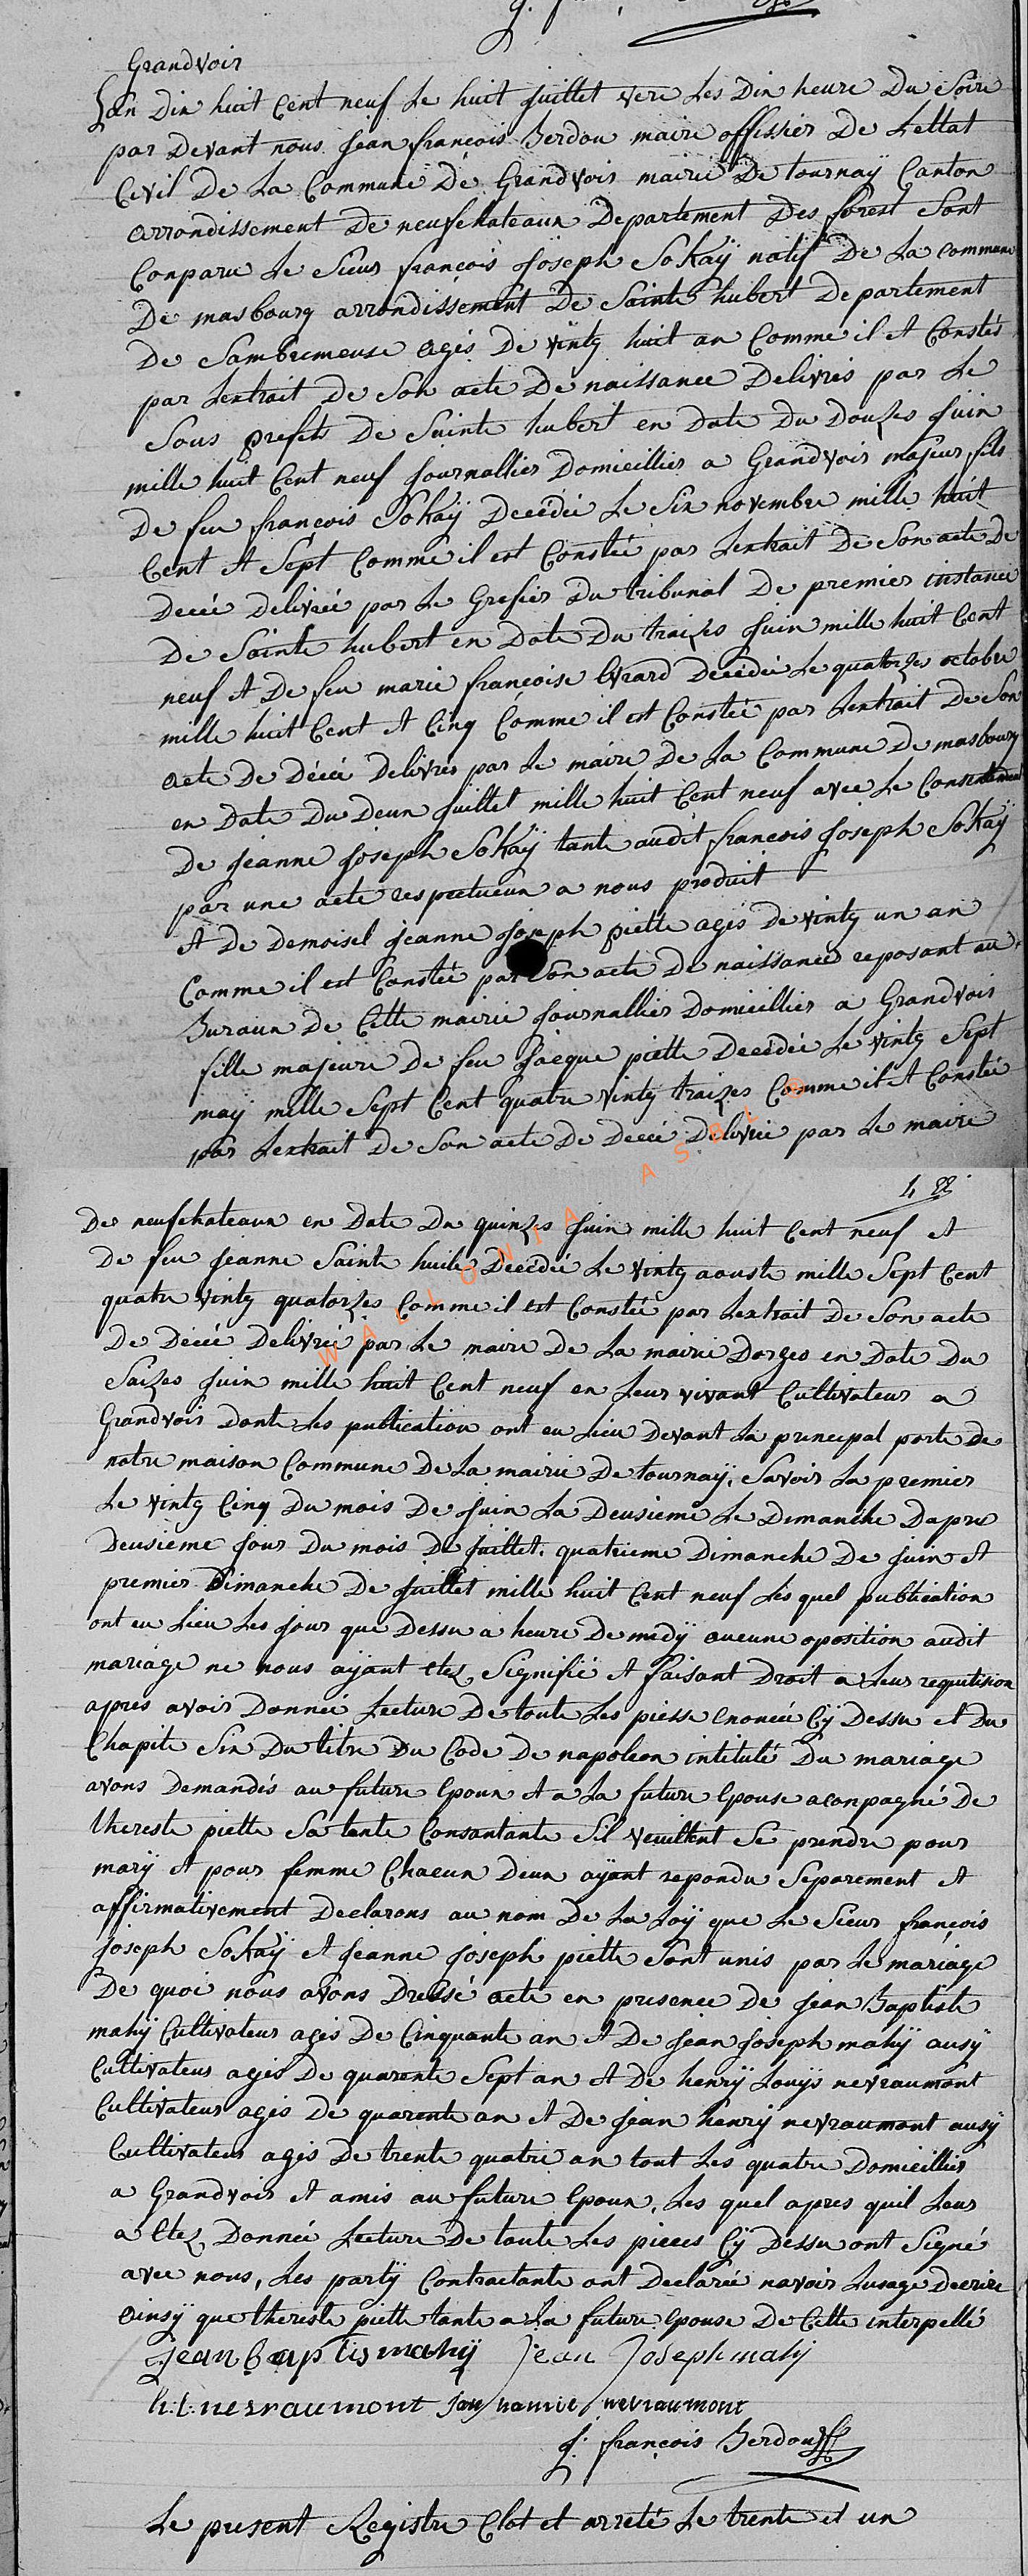 Grandvoir
Lan Dix huit Cent neuf Le huit Juillet vere Les Dix heure Du Soire
par Devant nous Jean françois Berdou maire offissier De Lettat
Civil De La Commune De Grandvoir mairie De tournaÿ Canton
arrondissement De neufchateaux Departement Des forest Sont
Conparu Le Sieur françois Joseph SoKaÿ natif De La Commune
De masbourg arrondissement De Sainte hubert Departement
De Sambremeuse agés De vintg huit an Comme il Et Constés
par Lextrait De Son acte De naissance Delivrés par Le
Sous prefets De Sainte hubert en Date Du Douzes Juin
mille huit Cent neuf Journallier Domicillier a Grandvoir majeur fils
De feu françois SoKaÿ Decédéé Le Six novembre mille huit
Cent Et Sept Comme il est Constéé par Lextrait De Son acte De
Decéé Delivréé par Le Grefier Du tribunal De premier instance
De Sainte hubert en Date Du traizes Juin mille huit Cent
neuf Et De feu marie françoise Evrard Decédéé Le quatorzes octobre
mille huit Cent Et Cinq Comme il est Constéé par Lextrait De Son
acte De Décéé Delivrés par Le maire De La Commune De masbourg
en Date Du Deux Juillet mille huit Cent neuf avec Le Consentement
De Jeanne Joseph SoKaÿ tante audit francois Joseph SoKaÿ
par une acte respectueux a nous produit
Et De Demoisel Jeanne Joseph piette agés De vintg un an
Comme il est Constéé par Son acte De naissance reposant au
Buraux De Cette mairie Journallier Domicillier a Grandvoir
fille majeure De feu Jacque piette Decédéé Le vintg Sept
maÿ mille Sept Cent quatre vintg traizes Comme il Et Constéé
par Lextrait De Son acte De Decéé Delivréé par Le maire
De neufchateaux en Date Du quinzes Juin mille huit Cent neuf et
De feu Jeanne Sainte huile Decédéé Le vintg aouste mille Sept Cent
quatre vintg quatorzes Comme il est Constéé par Lextrait De Son acte
De Décéé Delivréé par Le maire De La mairie Dorgeo en Date Du
Saizes Juin mille huit Cent neuf en Leur vivant Cultivateur a
Grandvoir Dont Les publication ont eu Lieu Devant La principal porte De
notre maison Commune De La mairie De tournaÿ, Savoir La premier
Le vintg Cinq Du mois De Juin La Deusieme Le Dimanche Dapre
Deusieme Jour Du mois De Juillet. quatrieme Dimanche De Juin Et
premier Dimanche De Juillet mille huit Cent neuf Les quel publication
ont eu Lieu Les Jour que Dessu a heure De midÿ aucune oposition audit
mariage ne nous aÿant Etez Signifié Et faisant Droit a Leur requitision
apres avoir Donnéé Lecture De toute Les piesse Enoncéé Cÿ Dessu et Du
Chapite Six Du titre Du Code De napoleon intitulé Du mariage
avons Demandés au future Epoux Et a La future Epouse aconpagné De
thereste piette Sa tante Consantante Sil veuillent Se prendre pour
marÿ Et pour femme Chacun Deux aÿant repondu Separement Et
affirmativement Declarons au nom De La Loÿ que Le Sieur françois
Joseph SoKaÿ Et Jeanne Joseph piette Sont unis par Le mariage
De quoi nous avons Dressé acte en presence De Jean Baptiste
mahÿ Cultivateur agés De Cinquante an Et De Jean Joseph mahÿ ausÿ
Cultivateur agés De quarente Sept an Et De henrÿ Louÿs nevraumont
Cultivateur agés De quarente an Et De Jean henrÿ nevraumont ausÿ
Cultivateur agés De trente quatre an tout Les quatre Domicillier
a Grandvoir Et amis au future Epoux, Les quel apres quil Leur
a Etez Donnéé Lecture De toute Les pieces Cÿ Dessu ont Signé
avec nous, Les partÿ Contractante ont Declaréé navoir Lusage Decrire
ainsÿ que thereste piette tante a La future Epouse De Cette interpellé
jean baptis mahÿ jean Joseph mahÿ
h:L: nevraumont jan hanrie nevraumont
J: françois Berdou
Le present Registre Clot et arreté Le trente et un
WALLONIA ASBL